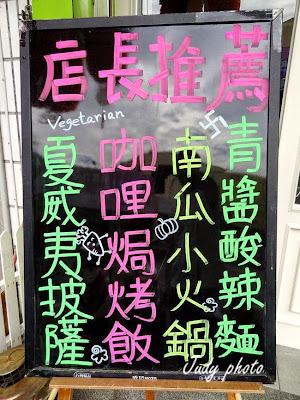 店長推薦
Vegetarian
卐
青醬酸辣麵
南瓜小火鍋
咖哩焗烤飯
夏威夷披薩
Judy photo